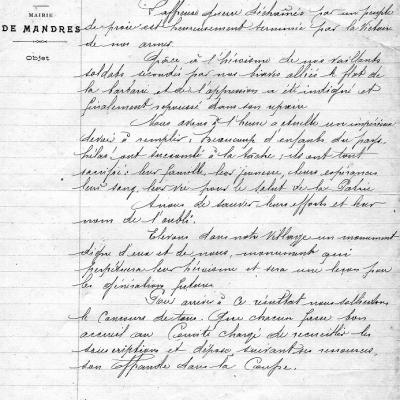 MAIRIE
DE MANDRES
Objet
L'affreuse guerre déchaînée par un peuple
de proie est heureusement terminée par la Victoire
de nos armes.
Grâce à l'héroïsme de nos vaillants
soldats secondés par nos braves alliés le flot de
la barbarie et de l'oppression a été endigué et
finalement repoussé dans son repaire
Nous avons à l'heure actuelle un impérieux
devoir à remplir; beaucoup d'enfants du pays
hélas, ont succombé à la tâche; ils ont tout
sacrifié: leur famille, leur jeunesse, leurs espérances
leur sang, leur vie pour le salut de la Patrie
A nous de sauver leurs efforts et leur
nom de l'oubli.
Elevons dans notre Village un monument
digne d'eux et de nous, monument qui
perpétuera leur héroïsme et sera une leçon pour
les générations futures.
Pour arriver à ce résultat nous sollicitons
le concours de tous. Que chacun fasse bon
accueil au Comité chargé de recueillir les
souscriptions et dépose, suivant ses ressources,
son offrande dans la Coupe.